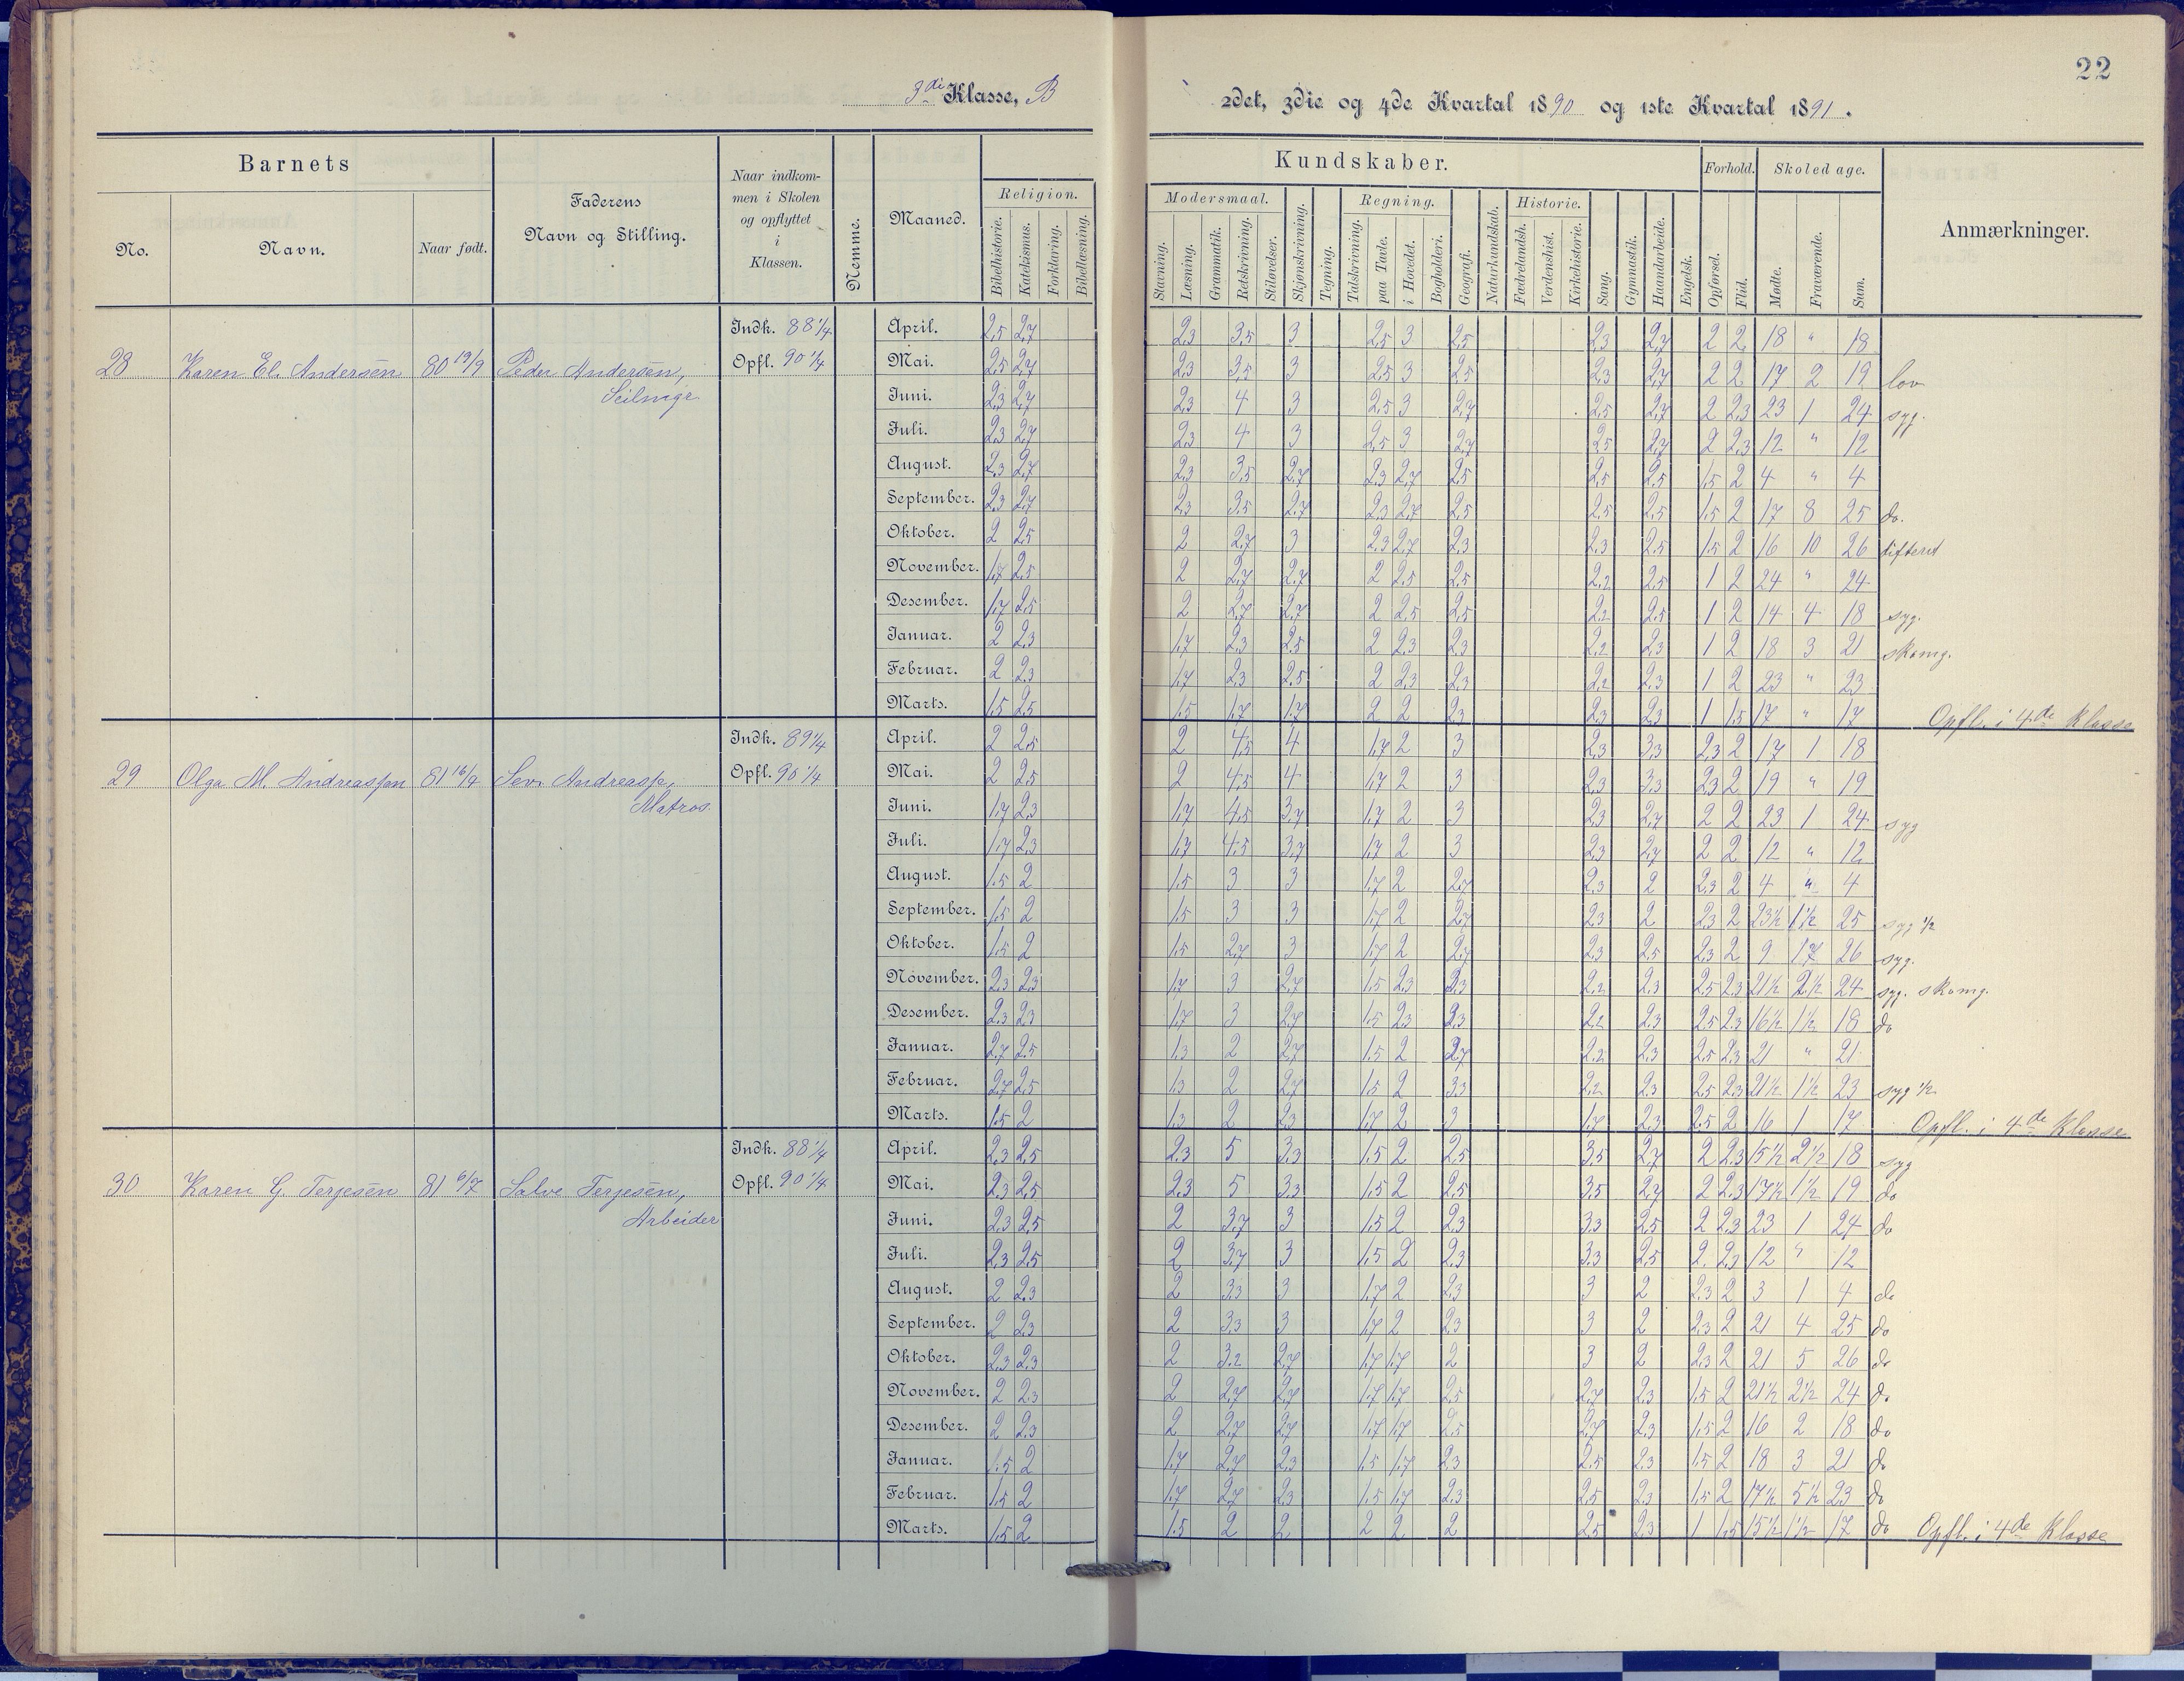 22
3die Klasse, B
2det, 3die og 4de Kvartal 1890 og 1ste Kvartal 1891.
Barnets
No.
Navn.
Naar født.
Faderens
Navn og Stilling.
Naar indkom-
men i Skolen
og opflyttet
i
Klassen.
Nemme.
Maaned.
Kundskaber.
Religion.
Bibelhistorie.
Katekismus.
Forklaring.
Bibellæsning.
Modersmaal.
Stavning.
Læsning.
Grammatik.
Retskrivning.
Stiløvelser.
Skjønskrivning.
Tegning.
Regning.
Talskrivning.
paa Tavle.
i Hovedet.
Bogholderi.
Geografi.
Naturkundskab.
Historie.
Fædrelandsh.
Verdenshist.
Kirkehistorie.
Sang.
Gymnastik.
Haandarbeide.
Engelsk.
Forhold.
Opførsel.
Flid.
Skoledage.
Mødte.
Fraværende.
Sum.
Anmærkninger.
28 Karen El. Andersen 80 19/9 Peder Andersen,
Indk. 88 1/4
Opfl. 90 1/4
April. 2,5 2,7 2,3 3,5 3 2,5 3 2,5 2,3 2,7 2 2 18 " 18
Mai. 2,5 2,7 2,3 3,5 3 2,5 3 2,5 2,3 2,7 2 2 17 2 19 lov
Juni. 2,3 2,7 2,3 4 3 2,5 3 2,7 2,5 2,7 2 2,3 23 1 24 syg.
Juli. 2,3 2,7 2,3 4 3 2,5 3 2,7 2,5 2,7 2 2,3 12 " 12
August. 2,3 2,7 2,3 3,5 2,7 2,3 2,7 2,5 2,5 2,5 1,5 2 4 " 4
September. 2,3 2,7 2,3 3,5 2,7 2,3 2,7 2,5 2,5 2,5 1,5 2 17 8 25 do.
Oktober. 2 2,5 2 2,7 3 2,3 2,7 2,3 2,3 2,5 1,5 2 16 10 26 difterit
November. 1,7 2,5 2 2,7 2,7 2 2,5 2,5 2,2 2,5 1 2 24 " 24
Desember. 1,7 2,5 2 2,7 2,7 2 2,5 2,5 2,2 2,5 1 2 14 4 18 syg.
Januar. 2 2,3 1,7 2,3 2,5 2 2,3 2,3 2,2 2,3 1 2 18 3 21 skomg.
Februar. 2 2,3 1,7 2,3 2,5 2 2,3 2,3 2,2 2,3 1 2 23 " 23
Marts. 1,5 2,5 1,5 1,7 1,7 2 2 2,3 2,3 2,3 1 1,5 17 " 17 Opfl. i 4de Klasse
29 Olga M. Andreassen 81 16/9 Sev. Andreass.,
Matros
Indk. 89 1/4
Opfl. 90 1/4
April. 2 2,5 2 4,5 4 1,7 2 3 2,3 3,3 2,3 2 17 1 18
Mai. 2 2,5 2 4,5 4 1,7 2 3 2,3 3,3 2,3 2 19 " 19
Juni. 1,7 2,3 1,7 4,5 3,7 1,7 2 3 2,3 2,7 2 2 23 1 24 syg
Juli. 1,7 2,3 1,7 4,5 3,7 1,7 2 3 2,3 2,7 2 2 12 " 12
August. 1,5 2 1,5 3 3 1,7 2 2,7 2,3 2 2,3 2 4 " 4
September. 1,5 2 1,5 3 3 1,7 2 2,7 2,3 2 2,3 2 23½ 1½ 25 syg ½
Oktober. 1,5 2 1,5 2,7 3 1,7 2 2,7 2,3 2,5 2,3 2 9 17 26 syg.
November. 2,3 2,3 1,7 3 2,7 1,5 2,3 2,3 2,2 2,3 2,5 2,3 21½ 2½ 24 syg. skomg.
Desember. 2,3 2,3 1,7 3 2,7 1,5 2,3 2,3 2,2 2,3 2,5 2,3 16½ 1½ 18 do
Januar. 2,7 2,5 1,3 2 2,7 1,5 2 2,7 2,2 2,3 2,5 2,3 21 " 21
Februar. 2,7 2,5 1,3 2 2,7 1,5 2 3,3 2,2 2,3 2,5 2,3 21½ 1½ 23 syg ½
Marts. 1,5 2 1,3 2 2,3 1,7 2 3 1,7 2,3 2,5 2 16 1 17 Opfl. i 4de Klasse
30 Karen G. Terjesen 81 6/7 Salve Terjesen,
Arbeider
Indk. 88 1/4
Opfl. 90 1/4
April. 2,3 2,5 2,3 5 3,3 1,5 2 2,5 3,5 2,7 2 2,3 15½ 2½ 18 syg
Mai. 2,3 2,5 2,3 5 3,3 1,5 2 2,5 3,5 2,7 2 2,3 17½ 1½ 19 do
Juni. 2,3 2,5 2 3,7 3 1,5 2 2,3 3,3 2,5 2 2,3 23 1 24 do
Juli. 2,3 2,5 2 3,7 3 1,5 2 2,3 3,3 2,5 2 2,3 12 " 12
August. 2 2,3 2 3,3 3 1,7 2 2,3 3 2 2,3 2 3 1 4 do
September. 2 2,3 2 3,3 3 1,7 2 2,3 3 2 2,3 2 21 4 25 do
Oktober. 2,3 2,3 2 3,2 2,7 1,7 1,7 2 3 2 2,3 2 21 5 26 do
November. 2 2,3 2 2,7 2,7 1,7 1,7 2,5 2,7 2,3 1,5 2 21½ 2½ 24 do
Desember. 2 2,3 2 2,7 2,7 1,7 1,7 2,5 2,7 2,3 1,5 2 16 2 18 do
Januar. 1,5 2 1,7 2,7 2,3 1,5 1,7 2,3 2,5 2,3 1,5 2 18 3 21 do
Februar. 1,5 2 1,7 2,7 2,3 1,5 1,7 2,3 2,5 2,3 1,5 2 17½ 5½ 23 do
Marts. 1,5 2 1,5 2 2 2 2 2 2,5 2,3 1 1,5 15½ 1½ 17 do Opfl. i 4de Klasse